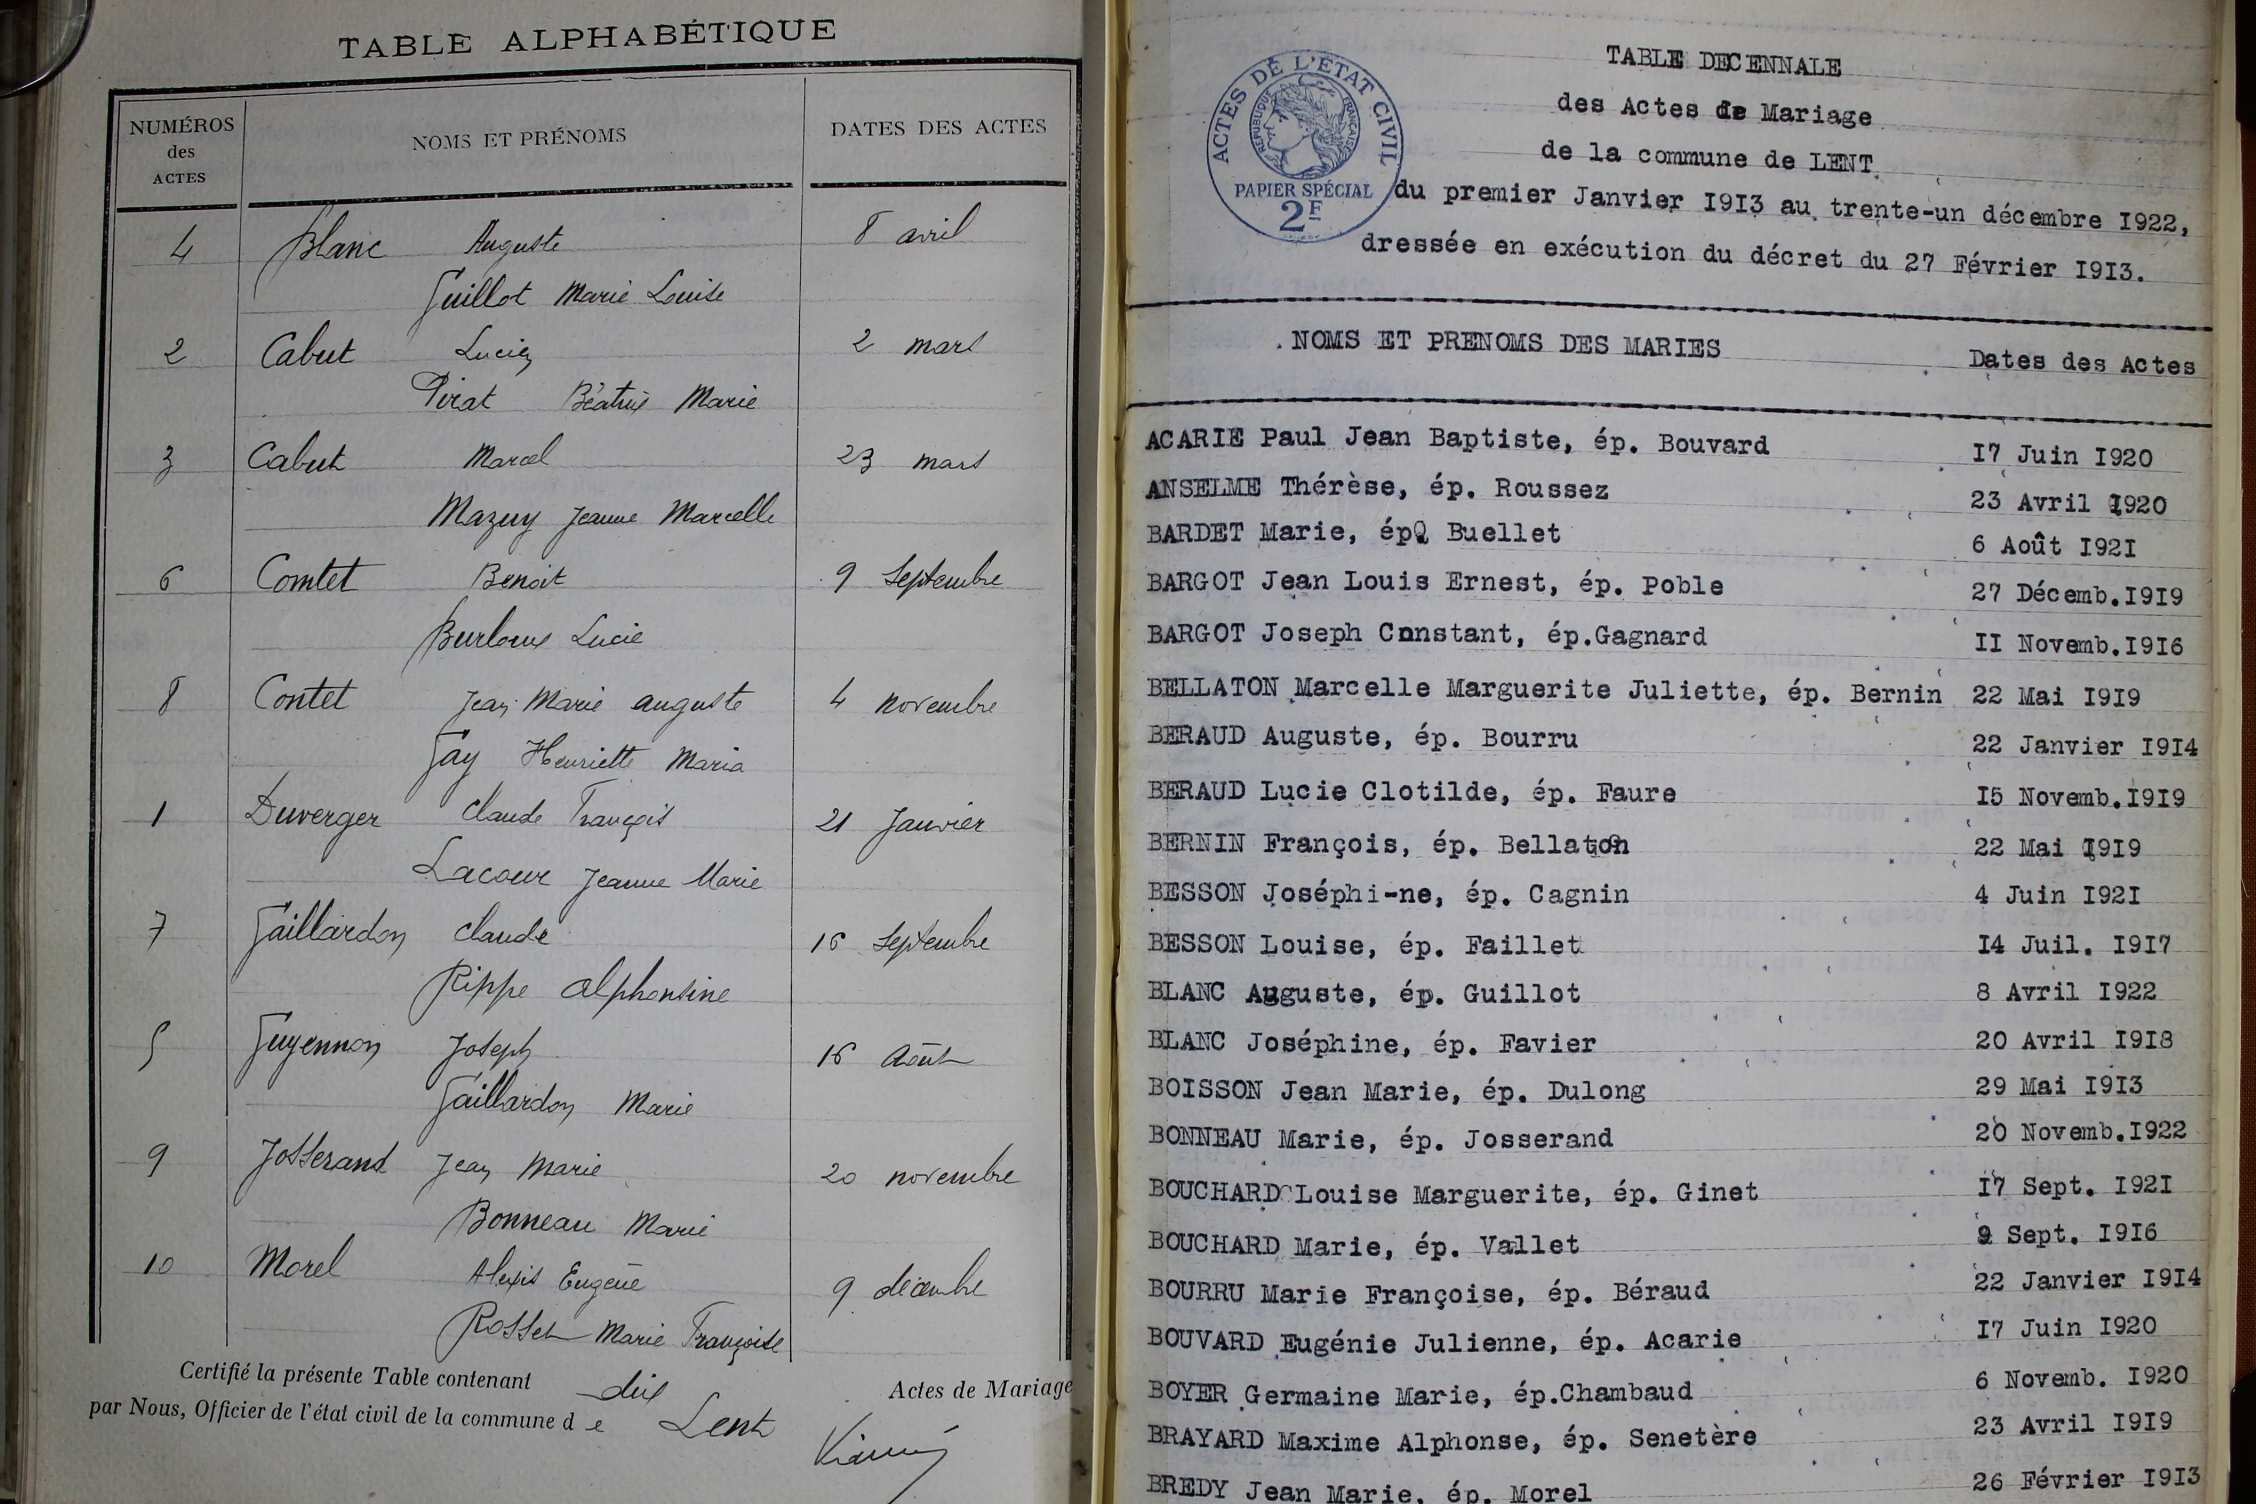 TABLE ALPHABÉTIQUE
NUMÉROS
des
ACTES
NOMS ET PRÉNOMS
DATES DES ACTES
4 Blanc Auguste 8 avril
Guillot Marie Louise
2 Cabut Lucien 2 mars
Pirat Béatrix Marie
3 Cabut Marcel 23 mars
Mazuy Jeanne Marcelle
6 Comtet Benoit 9 Septembre
Lucie
8 Contet Jean Marie auguste 4 novembre
Gay Henriette Maria
1 Duverger Claude François 21 Janvier
Lacour Jeanne Marie
7 Gaillardon Claude 16 Septembre
Rippe Alphonsine
5 Guyennon Joseph 16 Août
Gaillardon Marie
9 Josserand Jean Marie 20 novembre
Bonneau Marie
10 Morel Alexis Eugène 9 décembre
Rosset Marie Françoise
Certifié la présente Table contenant dix Actes de Mariage
par Nous, Officier de l'état civil de la commune d e Lent
ACTES DE L'ÉTAT CIVIL
RÉPUBLIQUE FRANÇAISE
PAPIER SPÉCIAL
2F
TABLE DECENNALE
des Actes de Mariage
de la commune de LENT
du premier Janvier I9I3 au trente-un décembre I922,
dressée en exécution du décret du 27 Février I9I3.
NOMS ET PRENOMS DES MARIES Dates des Actes
ACARIE Paul Jean Baptiste, ép. Bouvard I7 Juin I920
ANSELME Thérèse, ép. Roussez 23 Avril I920
BARDET Marie, ép. Buellet 6 Août I92I
BARGOT Jean Louis Ernest, ép. Poble 27 Décemb.I9I9
BARGOT Joseph Cnnstant, ép.Gagnard II Novemb.I9I6
BELLATON Marcelle Marguerite Juliette, ép. Bernin 22 Mai I9I9
BERAUD Auguste, ép. Bourru 22 Janvier I9I4
BERAUD Lucie Clotilde, ép. Faure I5 Novemb.I9I9
BERNIN François, ép. Bellaton 22 Mai I9I9
BESSON Joséphi-ne, ép. Cagnin 4 Juin I92I
BESSON Louise, ép. Faillet I4 Juil. I9I7
BLANC Auguste, ép. Guillot 8 Avril I922
BLANC Joséphine, ép. Favier 20 Avril I9I8
BOISSON Jean Marie, ép. Dulong 29 Mai I9I3
BONNEAU Marie, ép. Josserand 20 Novemb.I922
BOUCHARD Louise Marguerite, ép. Ginet I7 Sept. I92I
BOUCHARD Marie, ép. Vallet 9 Sept. I9I6
BOURRU Marie Françoise, ép. Béraud 22 Janvier I9I4
BOUVARD Eugénie Julienne, ép. Acarie I7 Juin I920
BOYER Germaine Marie, ép.Chambaud 6 Novemb. I920
BRAYARD Maxime Alphonse, ép. Senetère 23 Avril I9I9
BREDY Jean Marie, ép. Morel 26 Février I9I3